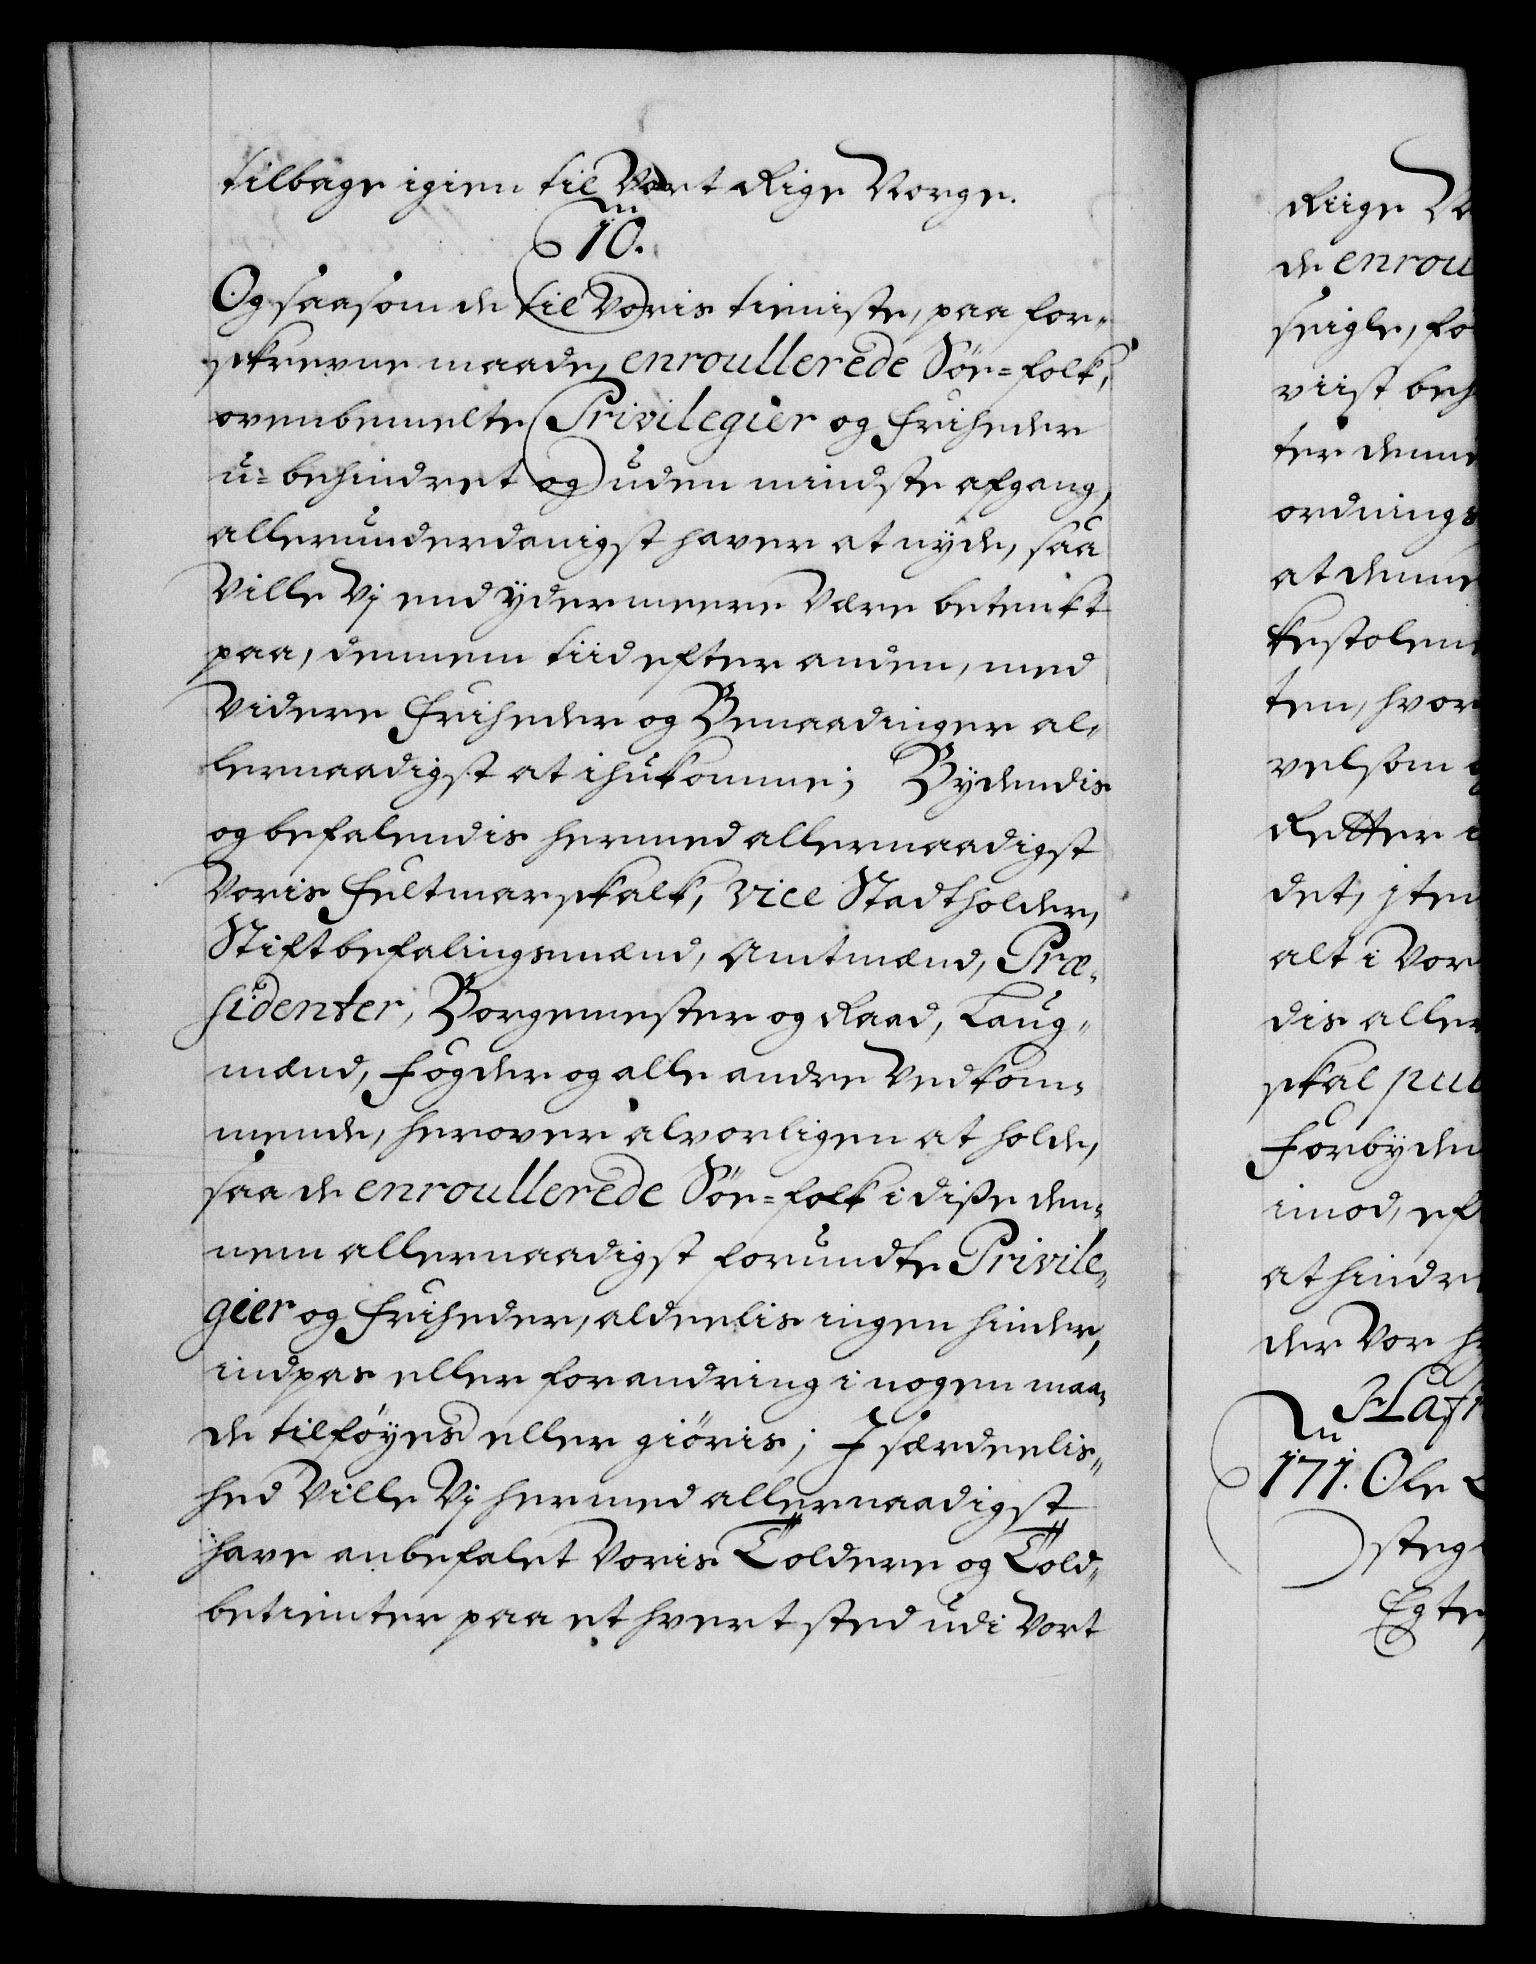 tilbage igien til Vort Rige Norge.
10.
Og saasom de til Voris tieniste, paa for-
skrevne maade, enroullerede Søe=folk,
ovenbemelte Privilegier og friheder
u=behindret og uden mindste afgang,
allerunderdanigst haver at nyde, saa
Ville Vj end ydermeere Være betenkt
paa, dennem tiid efter anden, med
Videre friheder og Benaadinger al-
lernaadigst at ihukomme; Bydendis
og befalendis hermed allernaadigst
Voris feltmarskalk, Vice Stadtholder,
Stiftbefalingsmænd, Amtmænd, Præ-
sidenter, Borgemester og Raad, Laug-
mænd, fogder og alle andre Vedkom-
mende, herover alvorligen at holde,
saa de enroullerede Søe=folk i diße den-
nem allernaadigst forundte Privile-
gier og friheder, aldeelis ingen hinder,
indpas eller forandring i nogen maa-
de tilføyes eller giöris; Jsærdeelis-
hed Ville Vj hermed allernaadigst
have anbefalet Voris Toldere og Told-
betienter paa et hvert sted udi Vort
Riige
de enrou
seigle, fo
viist beh
ter denne
ordnings
at denne
kestolene
ten, hvor
velsom
Retter
det, jtem
alt i Vor
dis aller
skal pub
Forbyden
imod, eft
at hindre
der Vor
Hafn
171. Ole
steg
Egte